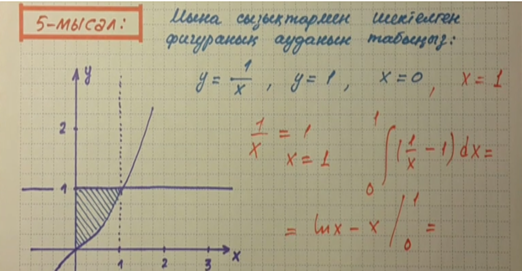 5-мысал: Мына сызықтармен шектелген
фигураның ауданын табыңыз:
y = 1/x , y = 1 , x = 0 , x = 1
1/x = 1
x = 1
∫₀¹ (1/x − 1) dx =
= ln x − x |₀¹ =
y
2
1
1 2 3 x